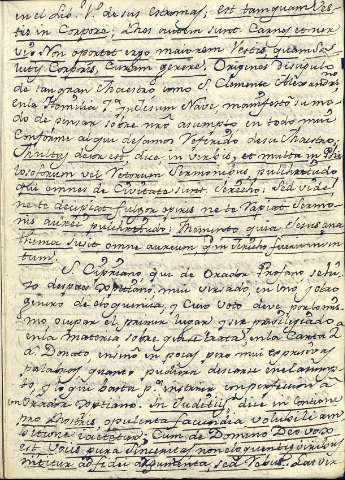 en el Lib. V.º de sus Estromas; est tamquam Ves-
tis in Corpore; Res autem sunt Carnes et ner-
vi. Non oportet ergo maiorem Vestis quam Sa-
lutis Corporis, Curam gerere. Origenes Discipulo
de tan gran Maestro como S. Clemente Alexandrino
en la Homilia 7.ª in Jesum Nave manifestó su mo-
do de pensar sobre nro asumpto en todo mui
conforme al que dejamos referido de su Maestro,
Multus decor est, dice, in verbis, et multa in Phi-
losoforum vel Retorum Sermonibus pulchritudo
qui omnes de Civitate sunt Jericho; Sed vide
ne te decipiat fulgor operis ne te rapiat Sermo-
nis aurei pulchritudo; Memento quia Jesus ana-
thema jusit omne aureum quod in Jericho fuerit inven-
tum.
S. Cipriano que de Orador Profano se hi-
zo despues Xptiano, mui versado en uno y otro
genero de eloquencia, y cuio voto deve por lo mis-
mo ocupar el primer lugar y ser privilegiado
en la Materia sobre que se trata, en la Carta 2
a Donato enseñó en pocas pero mui expresivas
palabras quanto pudiera desearse en el asump-
to, y lo que basta p.ª instruir con perfeccion a
un Orador Xptiano. In Judiciis, dice, in concione
pro Rostris opulenta facundia volubili am-
bitione iactetur; Cum de Domino Deo vox
est, Vocis pura Sinceritas non eloquentiae viribus
nititur ad fidei argumenta, sed rebus.